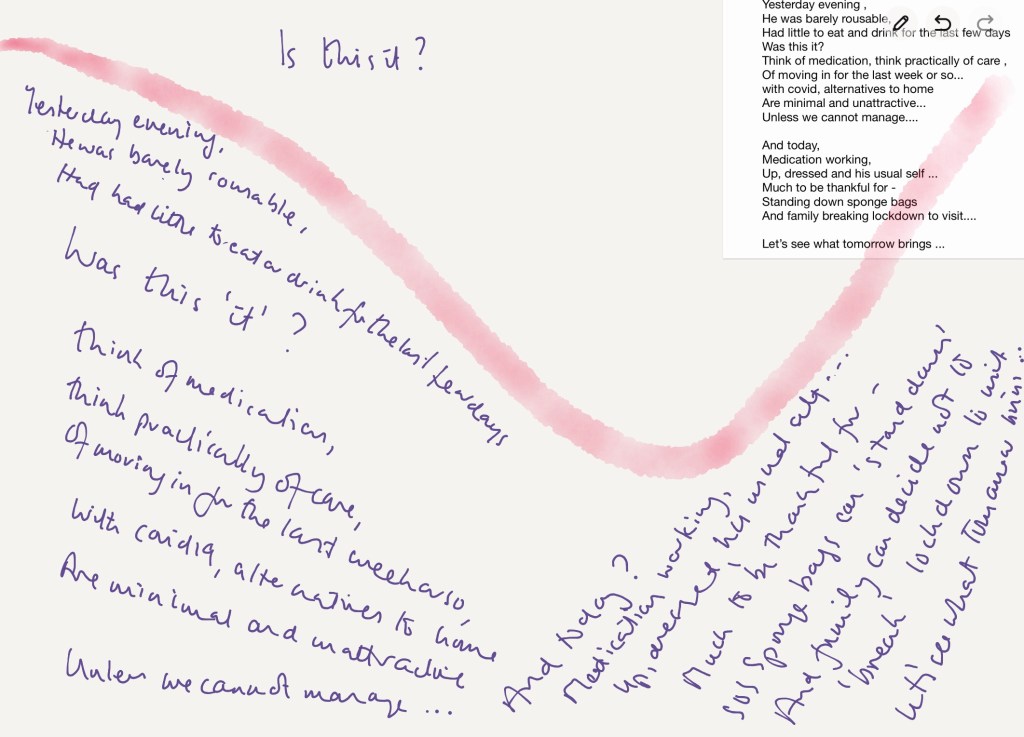 Is this it?
Yesterday evening,
He was barely rousable,
Had had little to eat or drink for the last few days
Was this 'it' ?
Think of medication,
Think practically of care,
Of moving in for the last week or so,
With covid19, alternatives to home
Are minimal and unattractive
Unless we cannot manage ...
And today ?
Medication working,
Up, dressed & his usual self ....
Much to be thankful for -
SOS sponge bags can 'stand down'
And family can decide not to
'break' lockdown to visit
Let's see what tomorrow brings ...
Yesterday evening ,
He was barely rousable,
Had little to eat and drink for the last few days
Was this it?
Think of medication, think practically of care ,
Of moving in for the last week or so...
with covid, alternatives to home
Are minimal and unattractive...
Unless we cannot manage....
And today,
Medication working,
Up, dressed and his usual self ...
Much to be thankful for -
Standing down sponge bags
And family breaking lockdown to visit....
Let's see what tomorrow brings ...